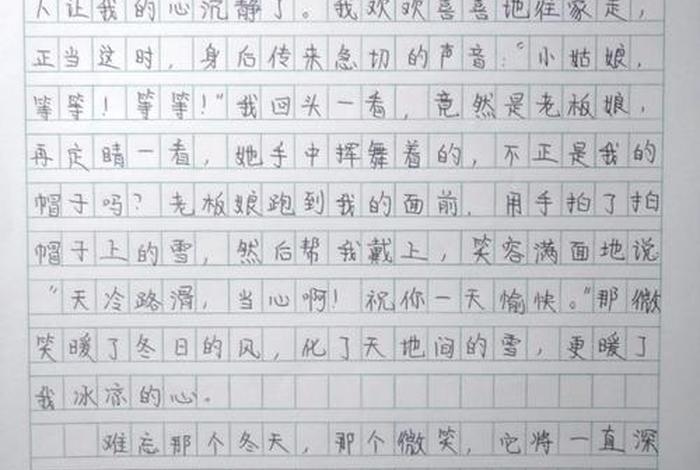 人让我的心沉静了。我欢欢喜喜地往家走，
正当这时，身后传来急切的声音："小姑娘，
等等！等等！"我回头一看，竟然是老板娘，
再定睛一看，她手中挥舞着的，不正是我的
帽子吗？老板娘跑到我的面前，用手拍了拍
帽子上的雪，然后帮我戴上，笑容满面地说
"天冷路滑，当心啊！祝你一天愉快。"那微
笑暖了冬日的风，化了天地间的雪，更暖了
我冰凉的心。
难忘那个冬天，那个微笑，它将一直深